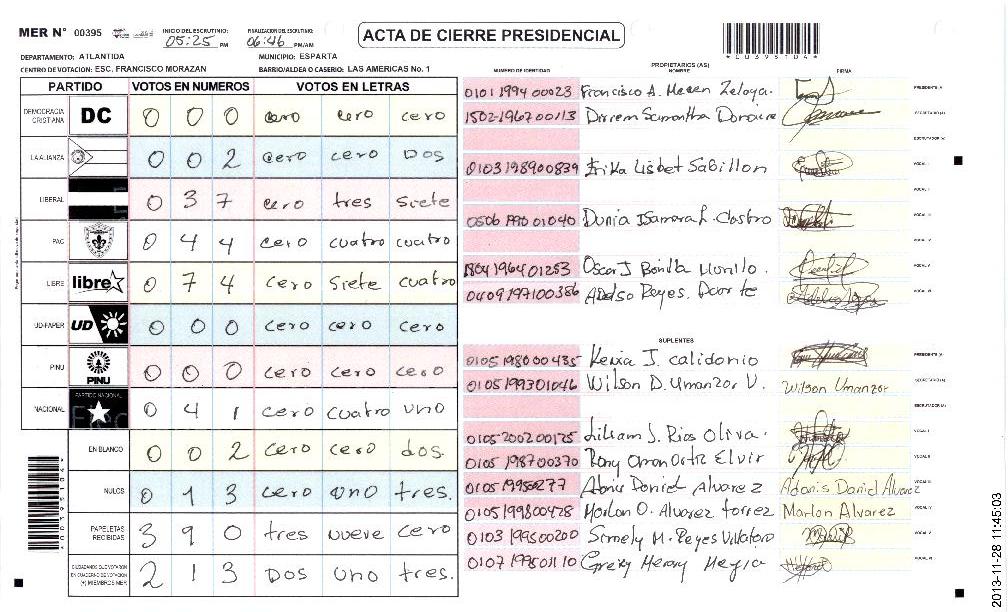 MER Nº 00395 INICIO DEL ESCRUTINIO: 05:25 PM FINALIZACION DEL ESCRUTINIO: 06:46 PM/AM
ACTA DE CIERRE PRESIDENCIAL
DEPARTAMENTO: ATLANTIDA MUNICIPIO: ESPARTA
CENTRO DE VOTACION: ESC. FRANCISCO MORAZAN BARRIO/ALDEA O CASERIO: LAS AMERICAS No. 1
PARTIDO VOTOS EN NUMEROS VOTOS EN LETRAS
DEMOCRACIA CRISTIANA DC 0 0 0 cero cero cero
LA ALIANZA 0 0 2 cero cero Dos
LIBERAL 0 3 7 cero tres siete
PAC 0 4 4 cero cuatro cuatro
LIBRE libre 0 7 4 cero siete cuatro
UD-FAPER UD 0 0 0 cero cero cero
PINU PINU 0 0 0 cero cero cero
NACIONAL PARTIDO NACIONAL 0 4 1 cero cuatro uno
EN BLANCO 0 0 2 cero cero dos.
NULOS 0 1 3 cero uno tres.
PAPELETAS RECIBIDAS 3 9 0 tres nueve cero
CIUDADANOS QUE VOTARON EN CUADERNO DE VOTACION (+) MIEMBROS MER 2 1 3 Dos uno tres.
PROPIETARIOS (AS)
NUMERO DE IDENTIDAD NOMBRE FIRMA
0101 1994 00023 Francisco A. Zelaya. PRESIDENTE (A)
1502-1967 00113 Samantha SECRETARIO (A)
ESCRUTADOR (A)
0103198900839 Erika Lisbet Sabillon VOCAL I
VOCAL II
0506 01040 Dunia Isamara L. Castro VOCAL III
VOCAL IV
1804196401253 Oscar J Bonilla Murillo. VOCAL V
0409197100386 Adelso Reyes. VOCAL VI
SUPLENTES
0105198000435 Kenia J. Calidonio PRESIDENTE (A)
0105199301046 Wilson D. Umanzor V. Wilson Umanzor SECRETARIO (A)
ESCRUTADOR (A)
0105200200125 Lilliam S. Rios Oliva. VOCAL I
0105198700370 Rony Oman Ortiz Elvir VOCAL II
Adonis Daniel Alvarez Adonis Daniel Alvarez VOCAL III
0105199800478 Marlon O. Alvarez torrez Marlon Alvarez VOCAL IV
M. Reyes Villatoro VOCAL V
VOCAL VI
*003951DA*
2013-11-28 11:45:03